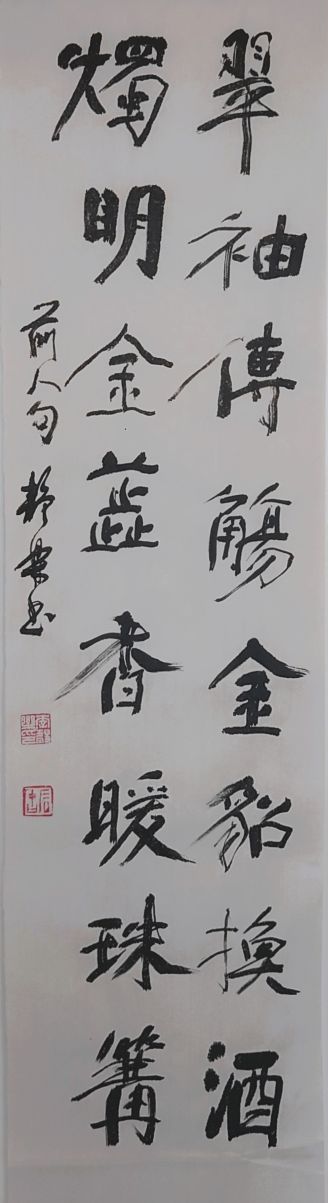 翠袖傳觴金貂換酒
燭明金蕋香暖珠篝
前人句 书